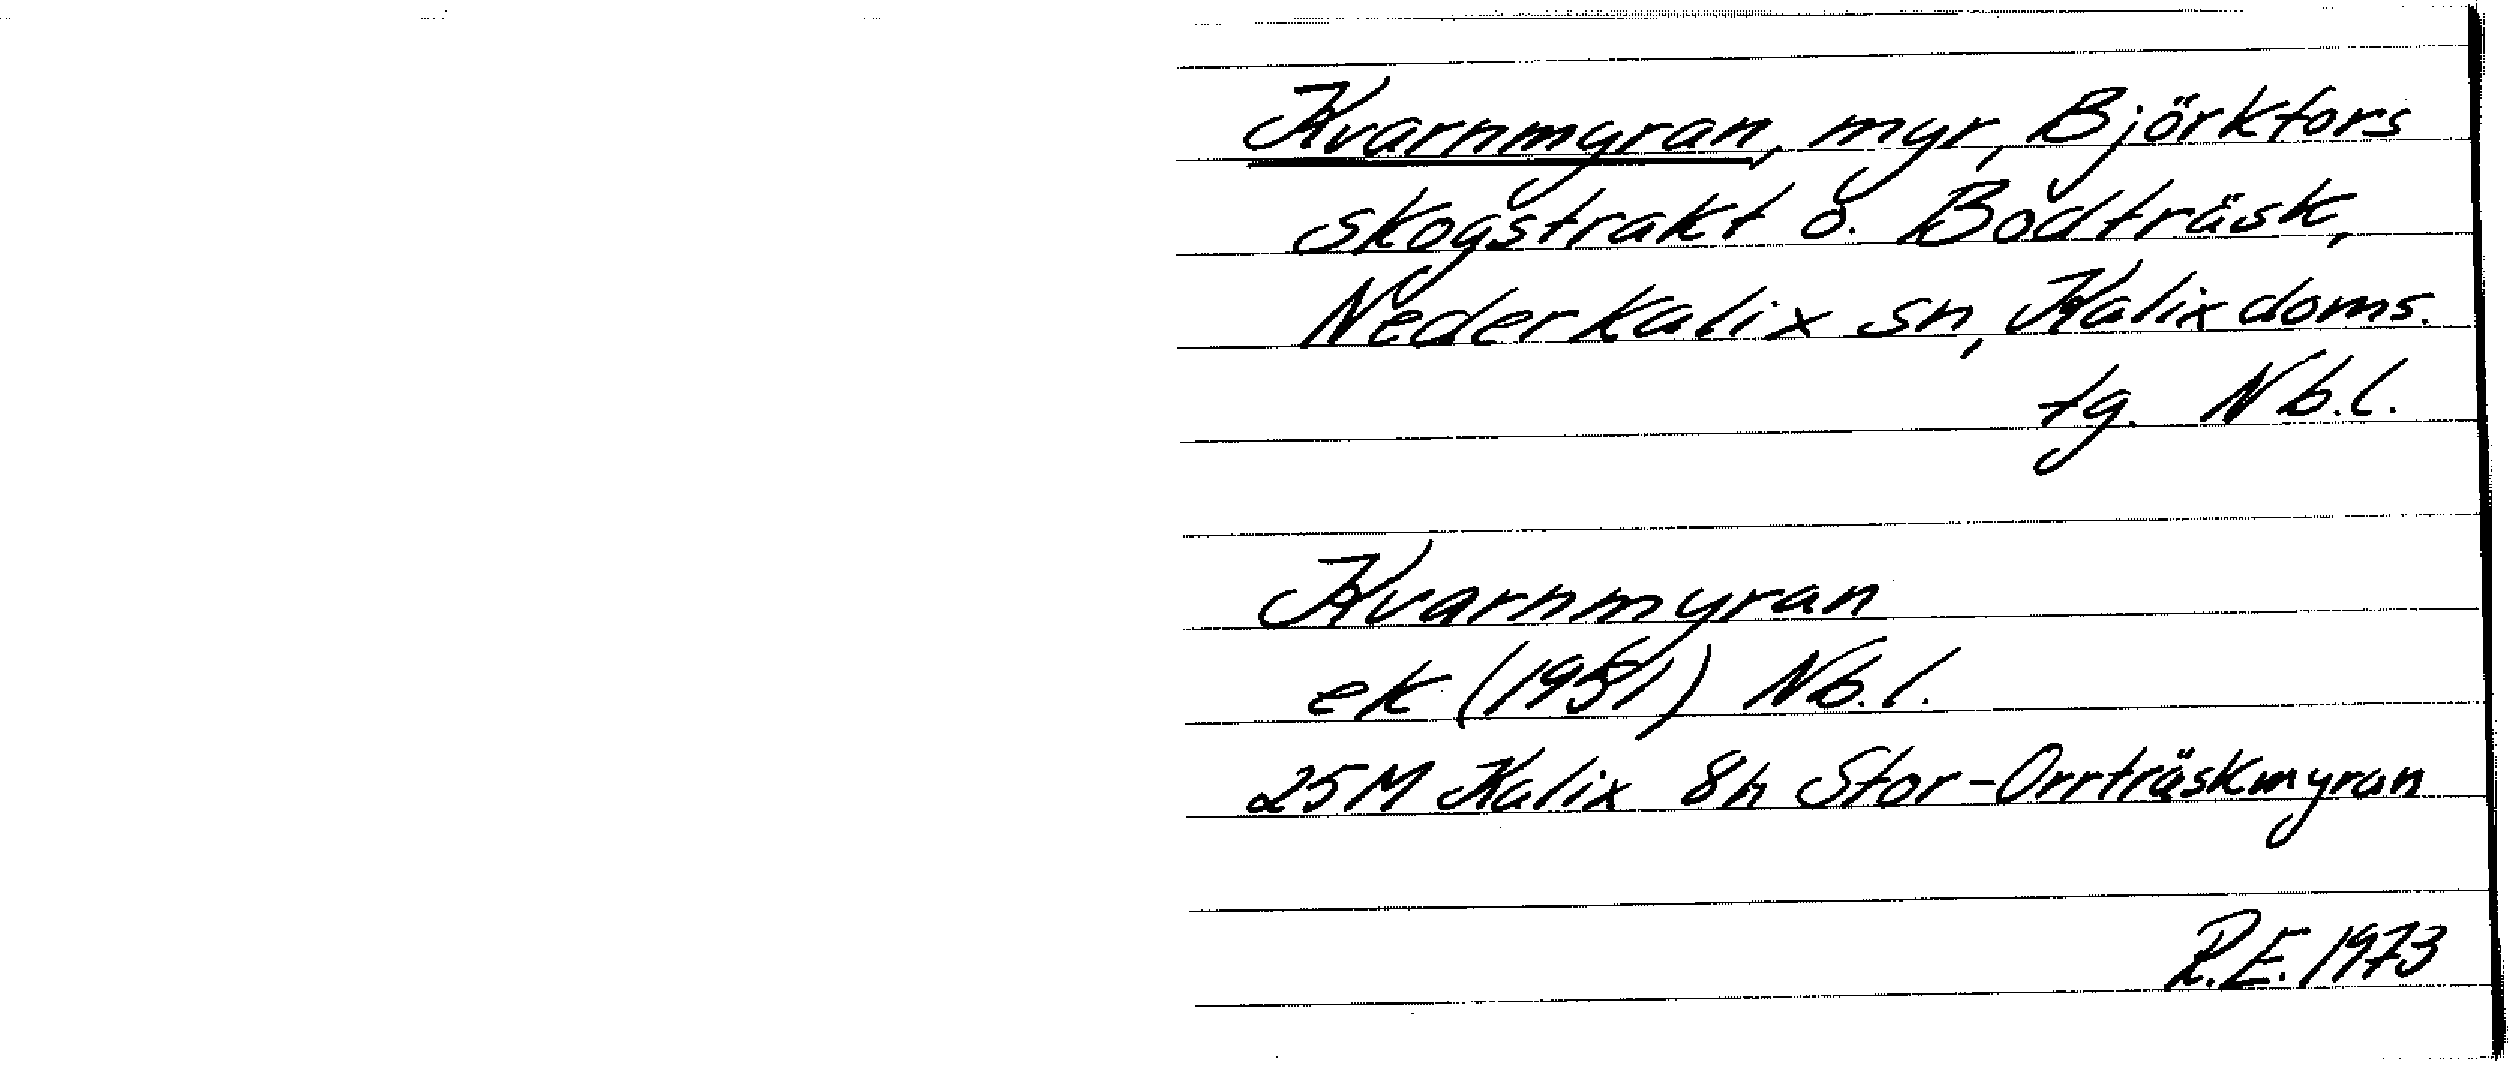 Kvarnmyran, myr, Björkfors
skogstrakt o. Bodträsk,
Nederkalix sn, Kalix doms.
tg. Nb.l.
Kvarnmyran
ek (1951) Nb.l.
25M Kalix 8h Stor-Orrträskmyran
R.E. 1973